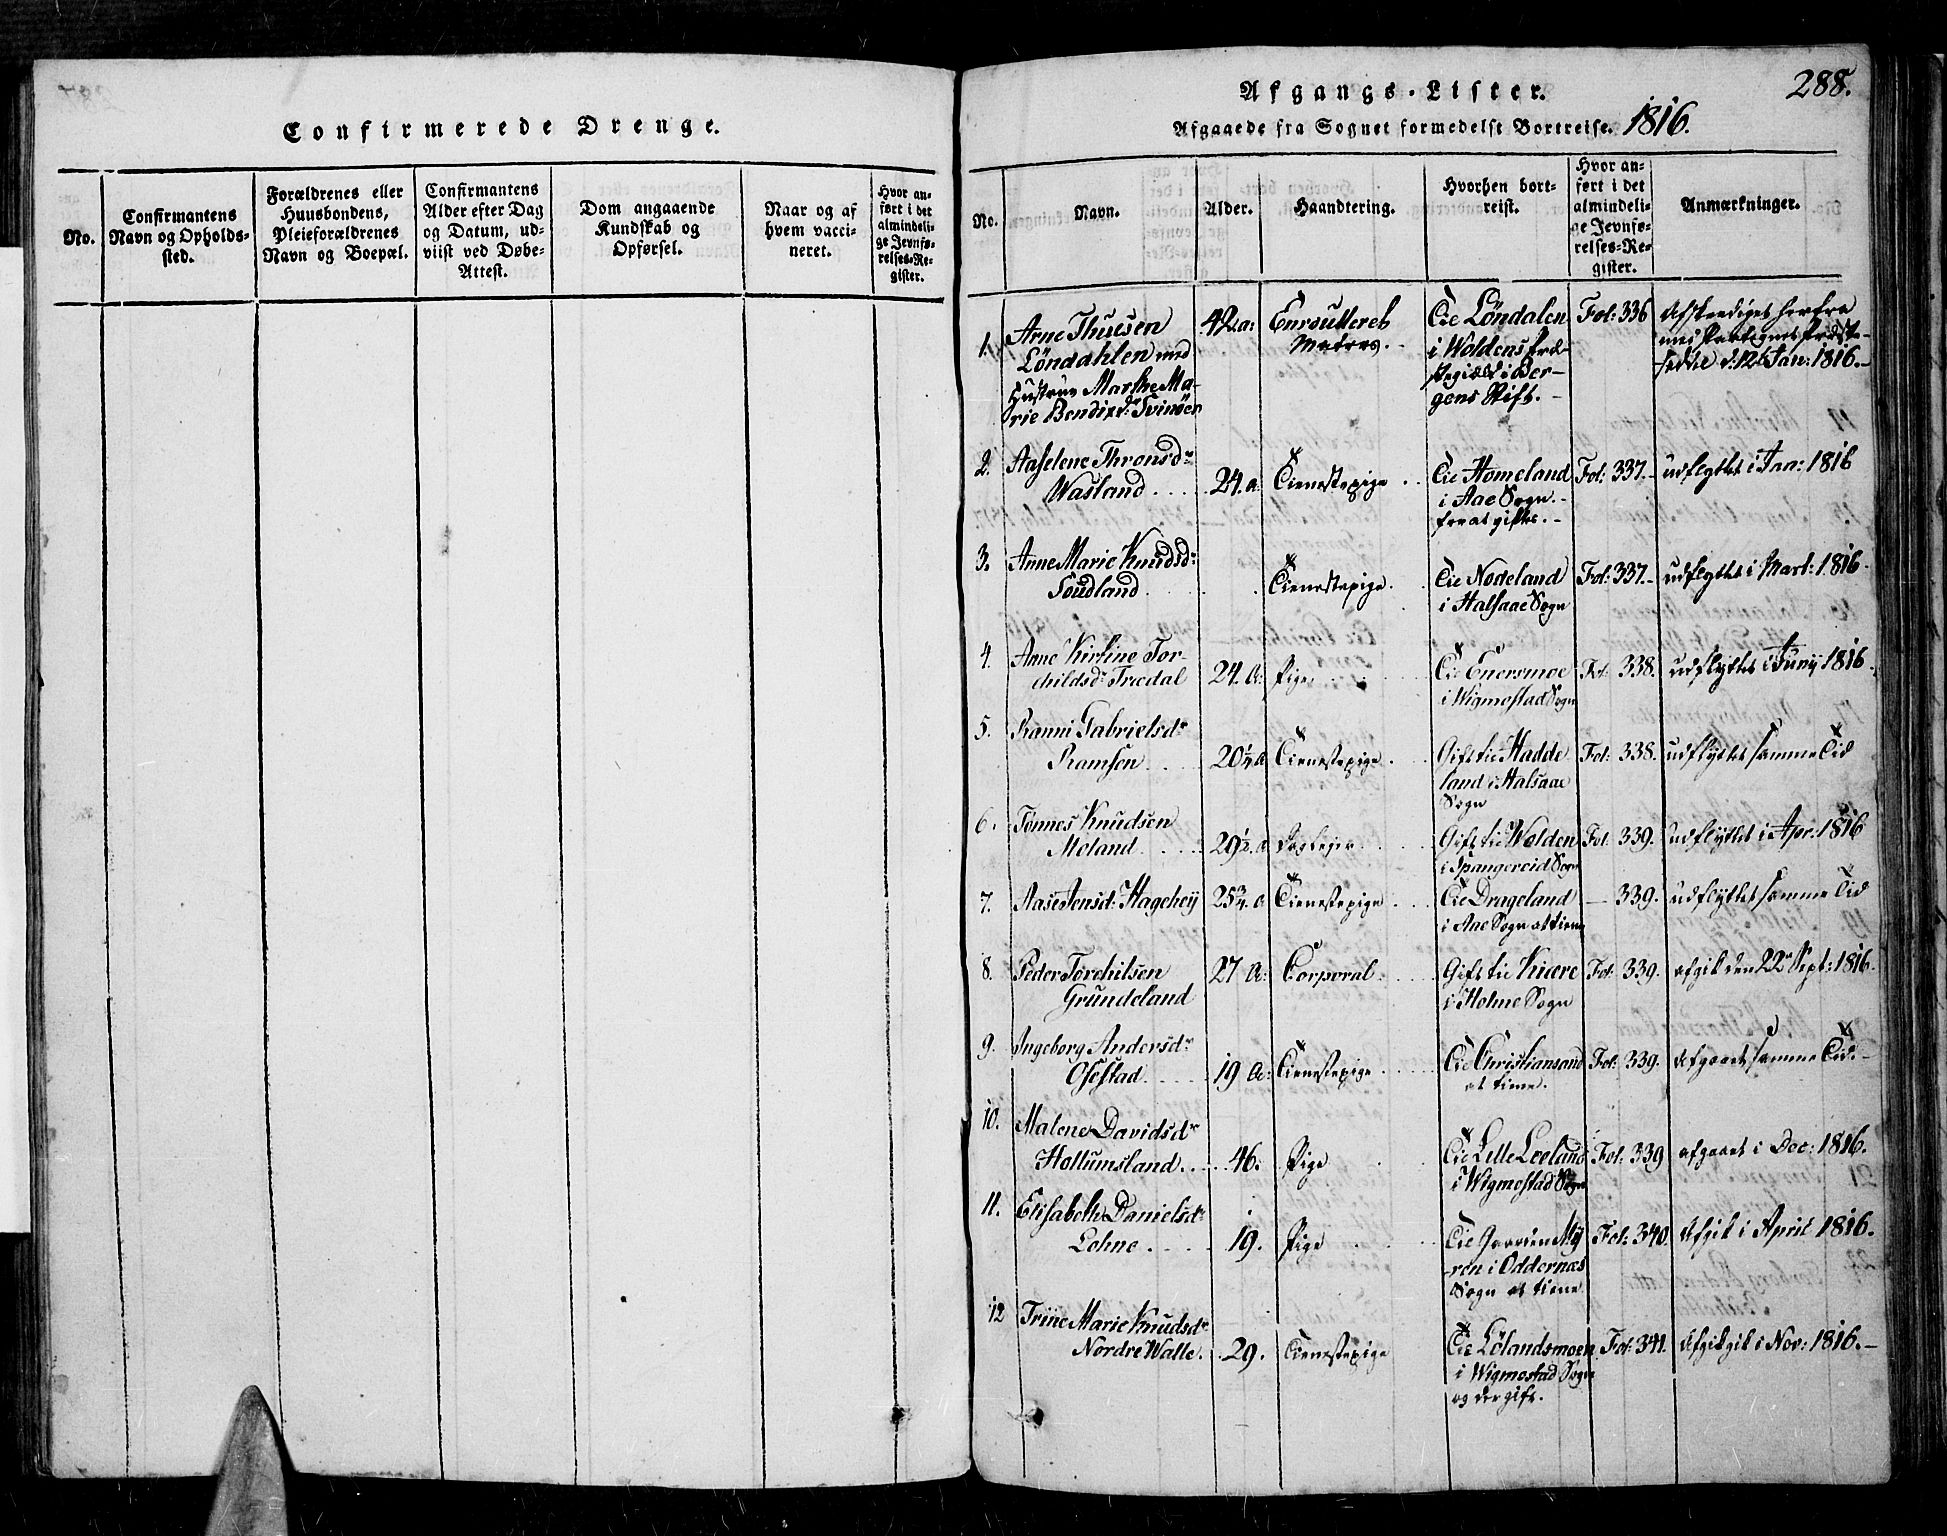 Confirmerede Drenge.
No.
Confirmantens
Navn og Opholds-
sted.
Forældrenes eller
Huusbondens,
Pleieforældrenes
Navn og Boepæl.
Confirmantens
Alder efter Dag
og Datum, ud-
viist ved Døbe-
Attest.
Dom angaaende
Kundskab og
Opførsel.
Naar og af
hvem vacci-
neret.
Hvor an-
ført i det
almindeli-
ge Jevnfø-
relses-Re-
gister.
288.
Afgangs-Lister.
Afgaaede fra Sognet formedelst Bortreise. 1816.
No.
Navn.
Alder.
Haandtering.
Hvorhen bort-
reist.
Hvor an-
ført i det
almindeli-
ge Jevnfø-
relses-Re-
gister.
Anmærkninger.
1. Arne Thuesen
Löndahlen med
Hustrue Marthe Ma-
rie Bendixd: Svinöer
42 a:
Enroulleret
Matros.
Til Löndalen
i Woldens Præ-
stegield i Ber-
gens Stift.
Fol: 336
Jan: 1816.
2. Aaselene Thronsdr
Wasland
24. a.
Tienestepige
Til Homeland
i Aae Sogn.
for at giftes.
Fol: 337.
udflyttet i Jan: 1816
3. Anne Marie Knudsdr:
Töudland
Tienestepige
Til Nodeland
i Halsaae Sogn
Fol: 337.
udflyttet i Mart: 1816
4. Anne Kirstine Tor-
childsdr Trædal
24. a:
Pige
Til Enersmoe
i Wigmostad Sogn
Fol: 338.
udflyttet i Junij 1816
5. Ranni Gabrielsdr
Ramsen
20¼ a
Tienestepige
Gift til Hadde
land i Halsaae
Sogn
Fol: 338.
udflyttet samme Tid
6. Tönnes Knudsen
Moland
29½ a
Gift til Wolden
i Spangereid Sogn
Fol: 339.
udflyttet i Apr: 1816
7. Aase Jensd: Hagehey
25¾ a
Tienestepige
Til Drageland
i Aae Sogn at tiene
339.
udflyttet samme Tid
8. Peder Torchilsen
Grundeland
27 a:
Corporal
Gift til Kiære
i Holme Sogn
Fol: 339.
afgik den 22de Sept: 1816.
9. Ingeborg Andersdr
Osestad
19 a:
Tienestepige
Til Christiansand
at tiene.
Fol: 339.
afgaaet samme Tid.
10. Malene Davidsdr
Hollumsland
46.
Pige
Til Lille Leeland
i Wigmostad Sogn
Fol: 339
afgaaet i Dec: 1816.
11. Elisabeth Danielsdr
Lohne
19.
Pige
Til My
ren i Oddernæs
Sogn at tiene
Fol: 340.
Afgik i April 1816.
12 Trine Marie Knudsdr
Nordre Walle.
29.
Tienestepige
Til Lölandsmoen
i Wigmostad Sogn
og der gift.
Fol: 341.
Afgik i Nov: 1816.